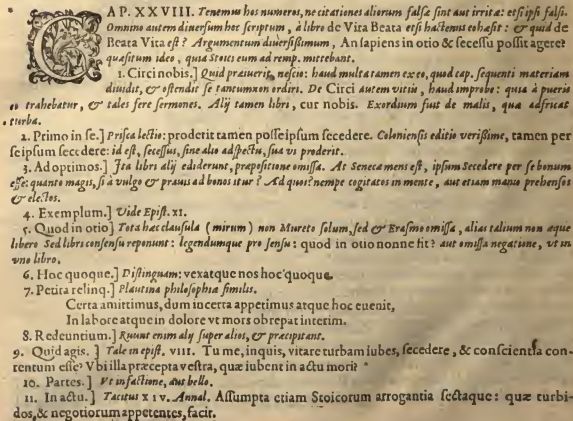 CAP. XXVIII. Tenemus hos numeros, ne citationes aliorum falsæ sint aut irritæ: etsi ipsi falsi.
Omnino autem diuersum hoc scriptum, à libro de Vita Beata etsi hactenus cohæsit: & quid de
Beata Vita est? Argumentum diuersissimum, An sapiens in otio & secessu possit agere?
quæsitum ideo, quia Stoici eum ad remp. mittebant.
1. Circi nobis.] Quid præiuerit, nescio: haud multa tamen ex eo, quod cap. sequenti materiam
diuidit, & ostendit se tantumnon ordiri. De Circi autem vitiis, haud improbe: quia à pueris
eo trahebatur, & tales fere sermones. Alij tamen libri, cur nobis. Exordium fuit de malis, qua adfricat
turba.
2. Primo in se.] Prisca lectio: proderit tamen posse ipsum secedere. Coloniensis editio verissime, tamen per
se ipsum secedere: id est, secessus, sine alio adspectu, sua vi proderit.
3. Ad optimos.] Ita libri alij ediderunt, præpositione omissa. At Senecæ mens est, ipsum Secedere per se bonum
esse: quanto magis, si à vulgo & prauis ad bonos itur? Ad quos? nempe cogitatos in mente, aut etiam manu prehensos
& electos.
4. Exemplum.] Vide Epist. XI.
5. Quod in otio] Tota hæc clausula (mirum) non Mureto solum, sed & Erasmo omissa, alias talium non æque
libero. Sed libri consensu reponunt: legendumque pro sensu: quod in otio nonne fit? aut omissa negatione, vt in
vno libro.
6. Hoc quoque.] Distinguam: vexatque nos hoc quoque.
7. Petita relinq.] Plautina philosophia similis.
Certa amittimus, dum incerta appetimus atque hoc euenit,
In labore atque in dolore vt mors obrepat interim.
8. Redeuntium.] Ruunt enim alij super alios, & præcipitant.
9. Quid agis.] Tale in epist. VIII. Tu me, inquis, vitare turbam iubes, secedere, & conscientia con-
tentum esse? Vbi illa præcepta vestra, quæ iubent in actu mori?
10. Partes.] Vt in factione, aut bello.
11. In actu.] Tacitus XIV. Annal. Assumpta etiam Stoicorum arrogantia sectaque: quæ turbi-
dos, & negotiorum appetentes, facit.